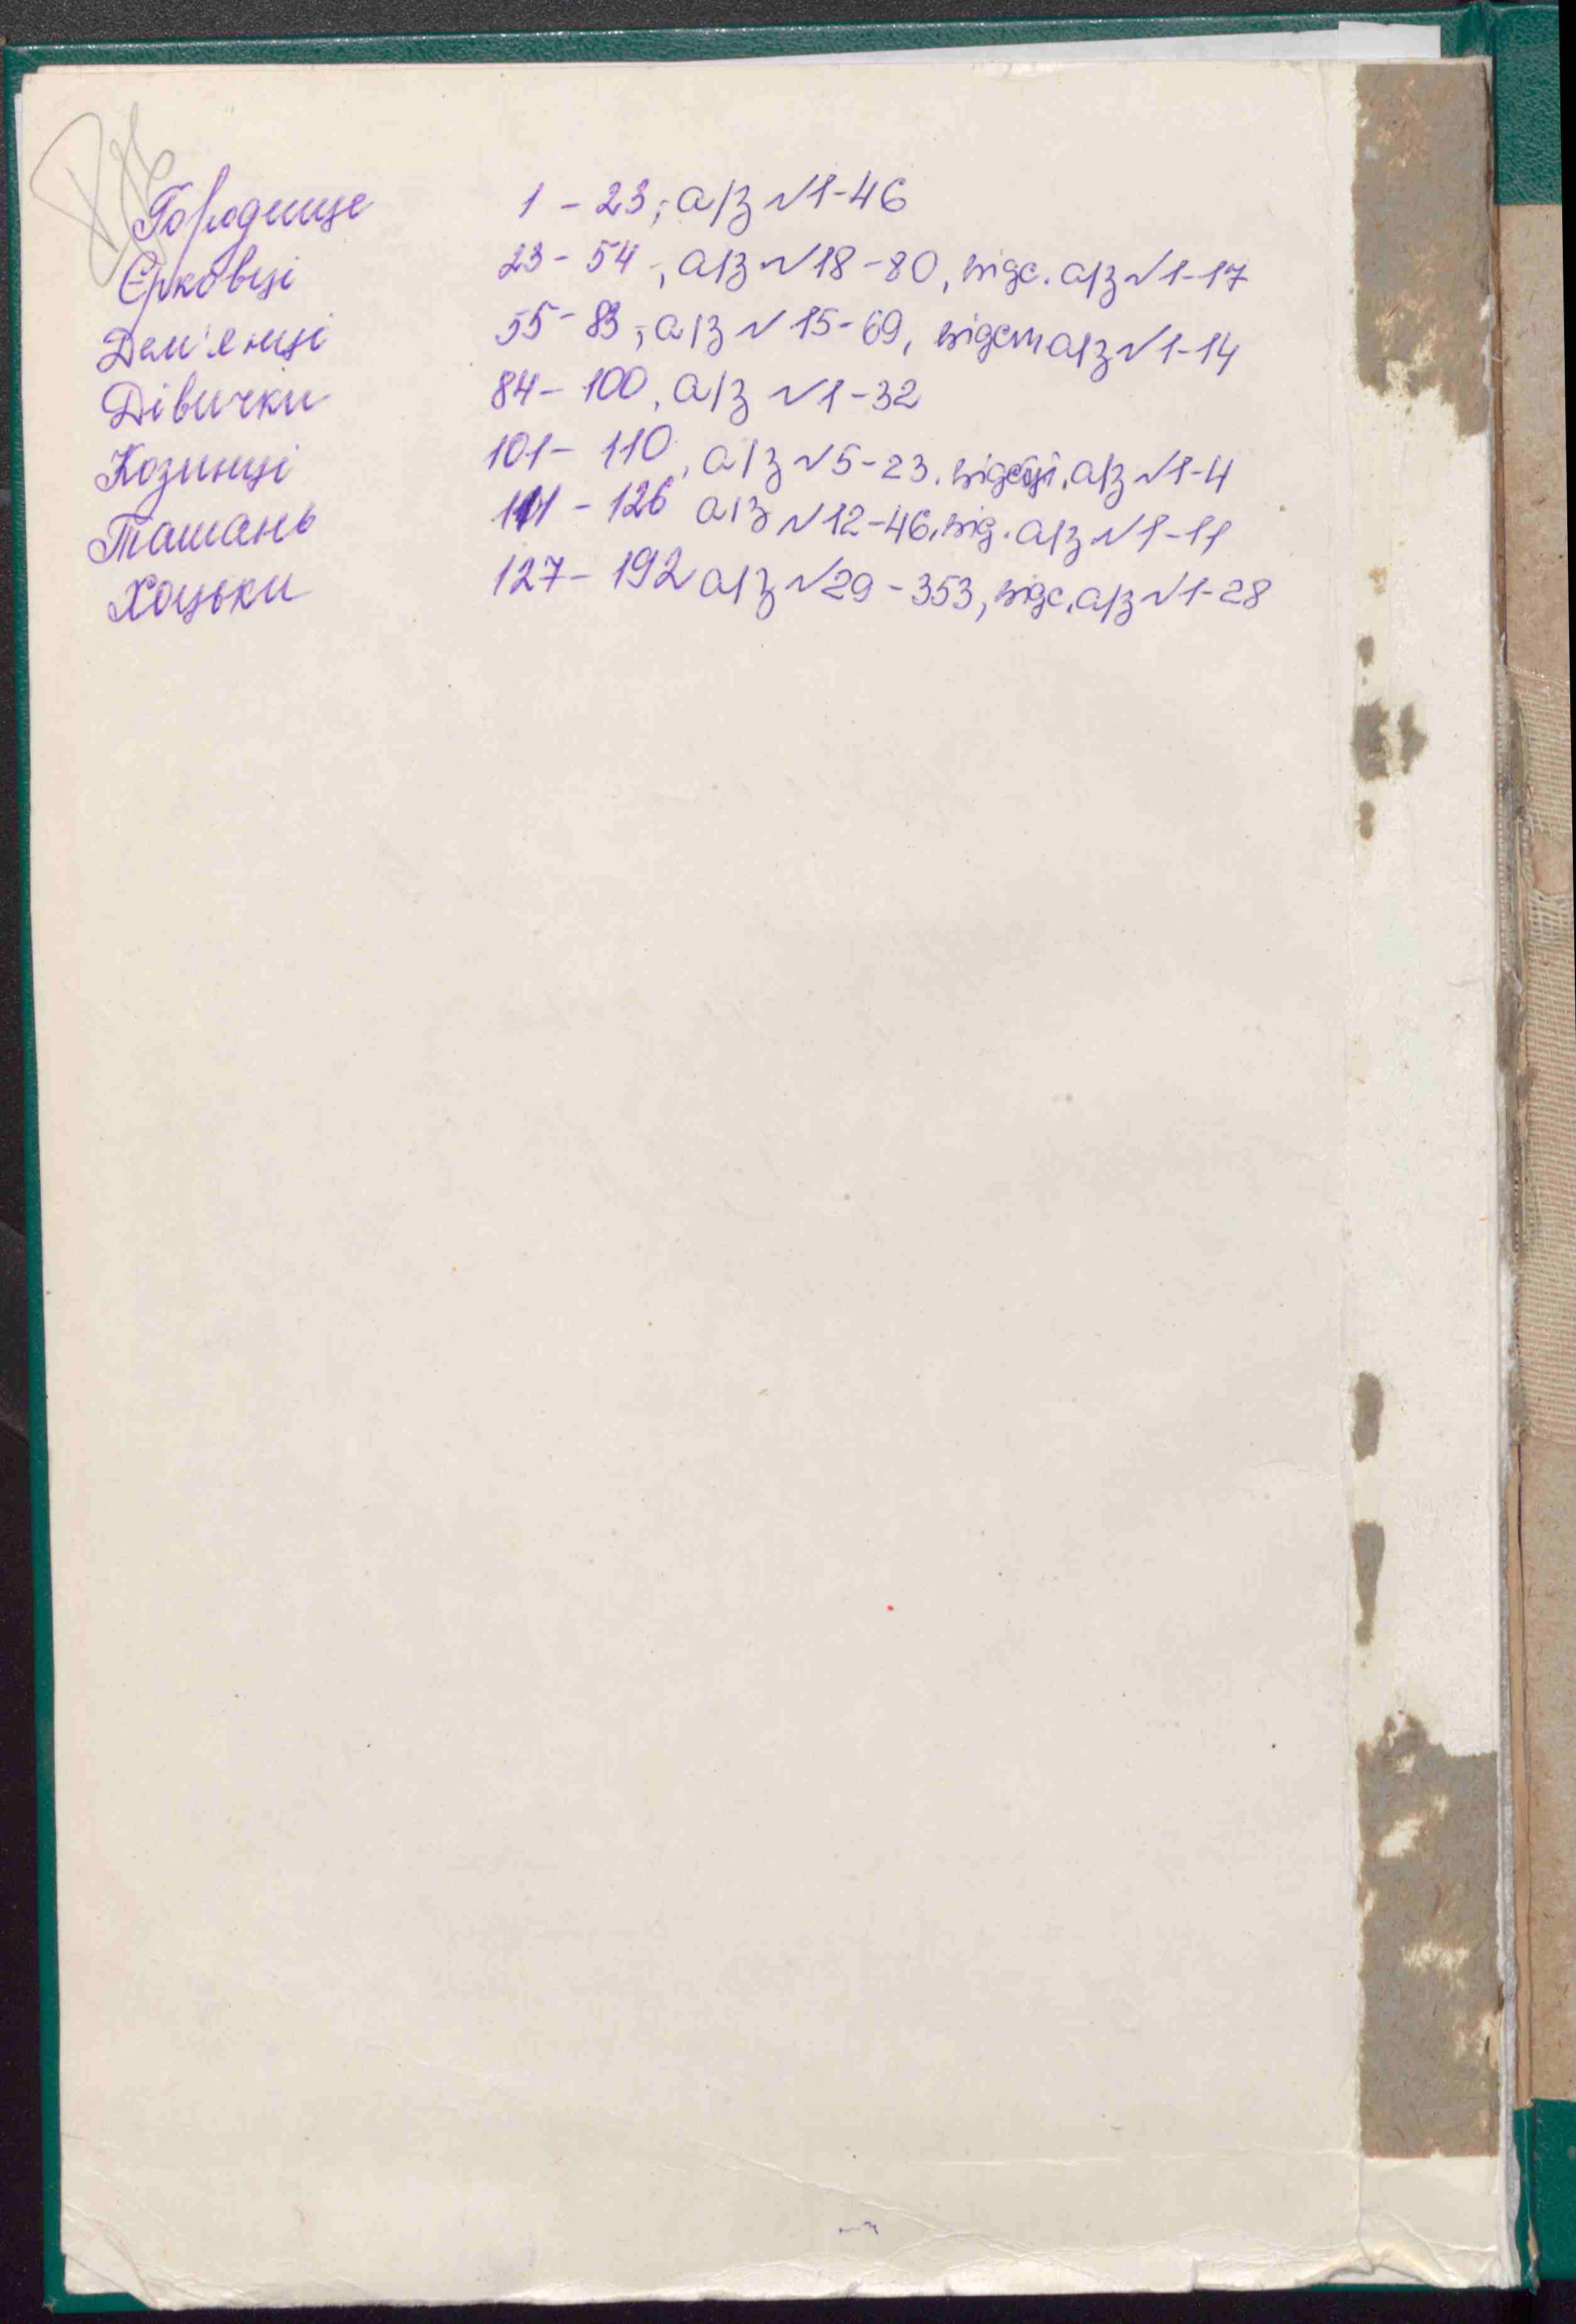 Городище 1 – 23, а/з №1-46
Єрковці 23 – 54, а/з №18-80, відс. а/з №1-17
Дем'янці 55 – 83, а/з №15-69, відсут а/з №1-14
Дівички 84 – 100, а/з №1-32
Козинці 101 – 110, а/з №5-23, а/з №1-4
Ташань 111 – 126 а/з №12-46, від. а/з №1-11
Хоцьки 127 – 192 а/з №29-353, відс. а/з №1-28